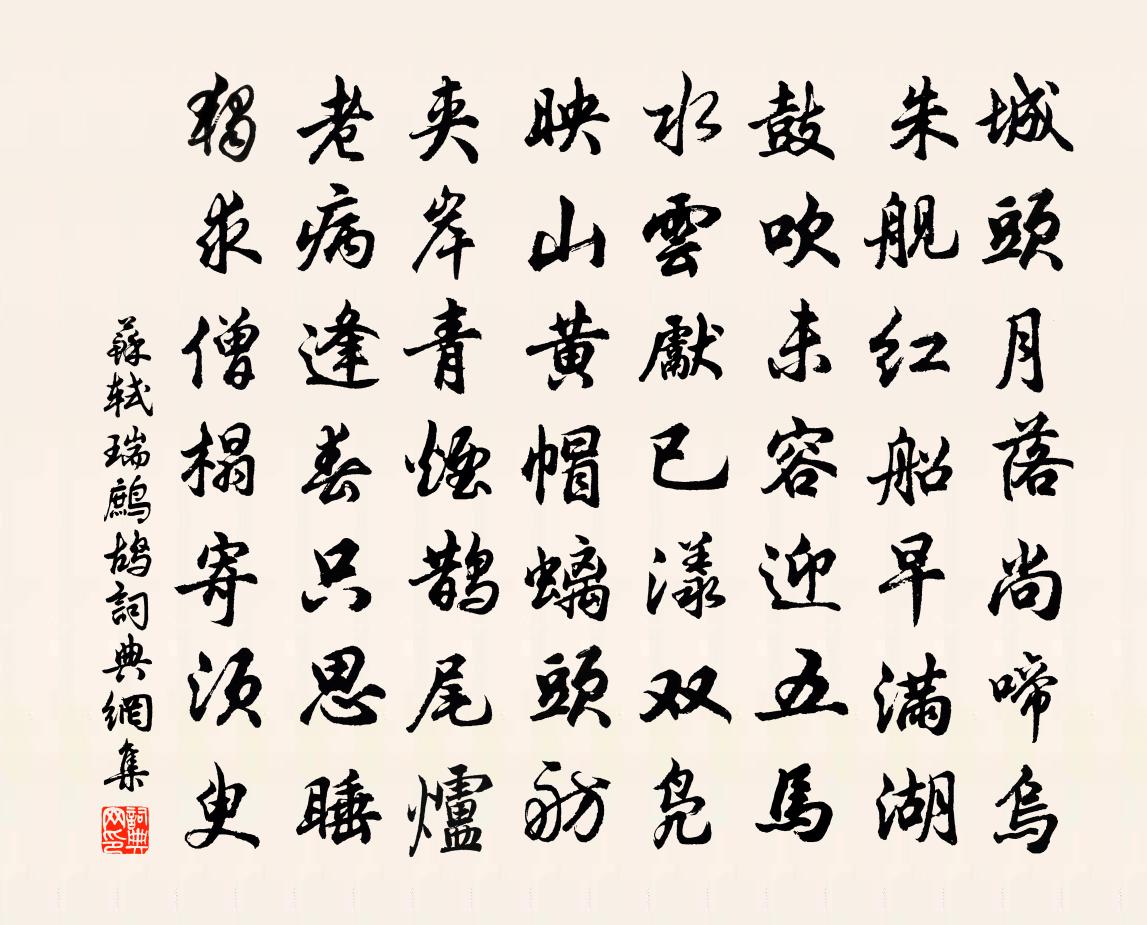 城頭月落尚啼烏
朱舰红船早满湖
鼓吹未容迎五馬
水雲獻已漾双凫
映山黃帽螭頭舫
夹岸青煙鹊尾爐
老病逢春只思睡
独求僧榻寄须臾
蘇轼瑞鷓鸪詞典網集
詞典网印